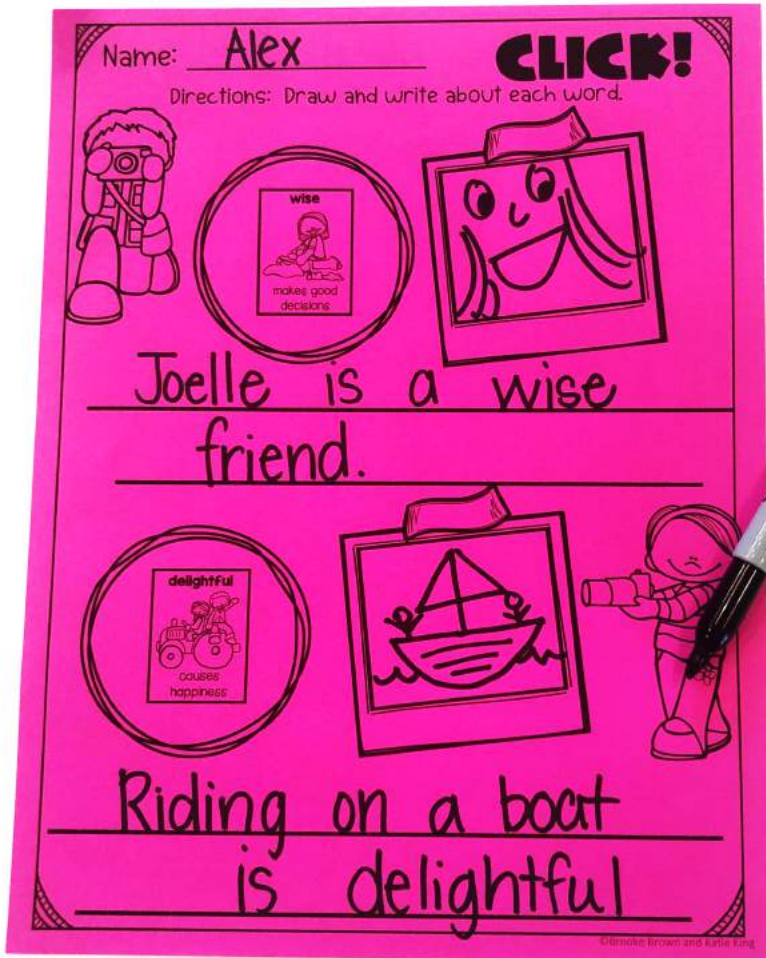 Name: Alex
CLICK!
Directions: Draw and write about each word.
wise
makes good
decisions
Joelle is a wise
friend.
delightful
causes
happiness
Riding on a boat
is delightful
©Brooke Brown and Katie King